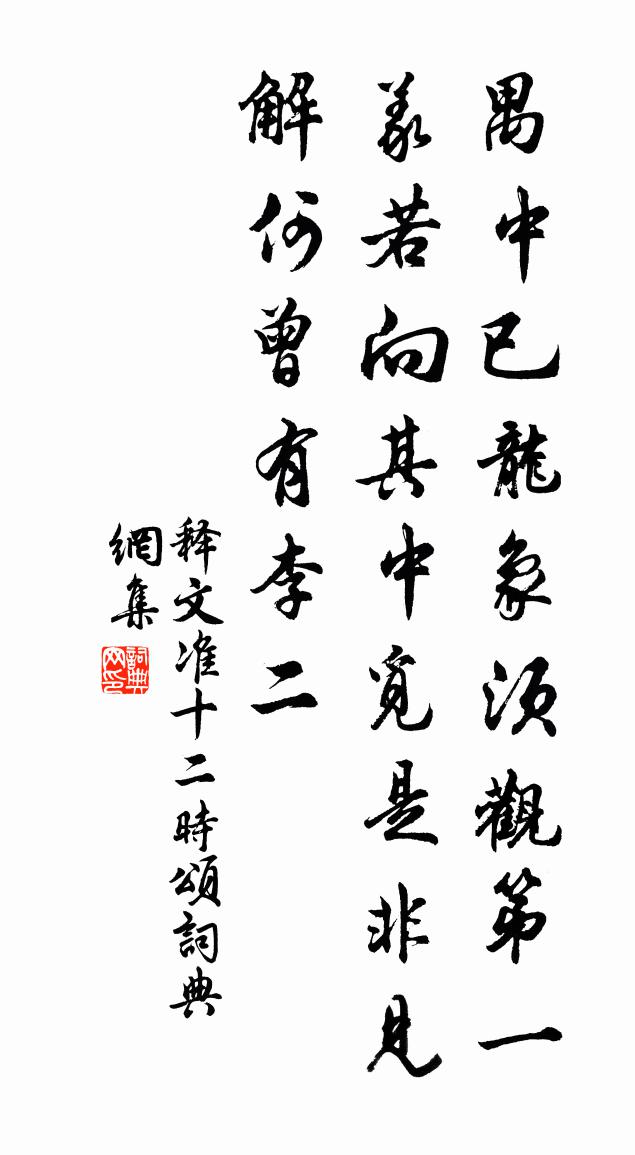 禺中巳龍象須觀第一
義若向其中覓是非見
解何曾有李二
释文准十二時頌詞典
網集
詞典
网印